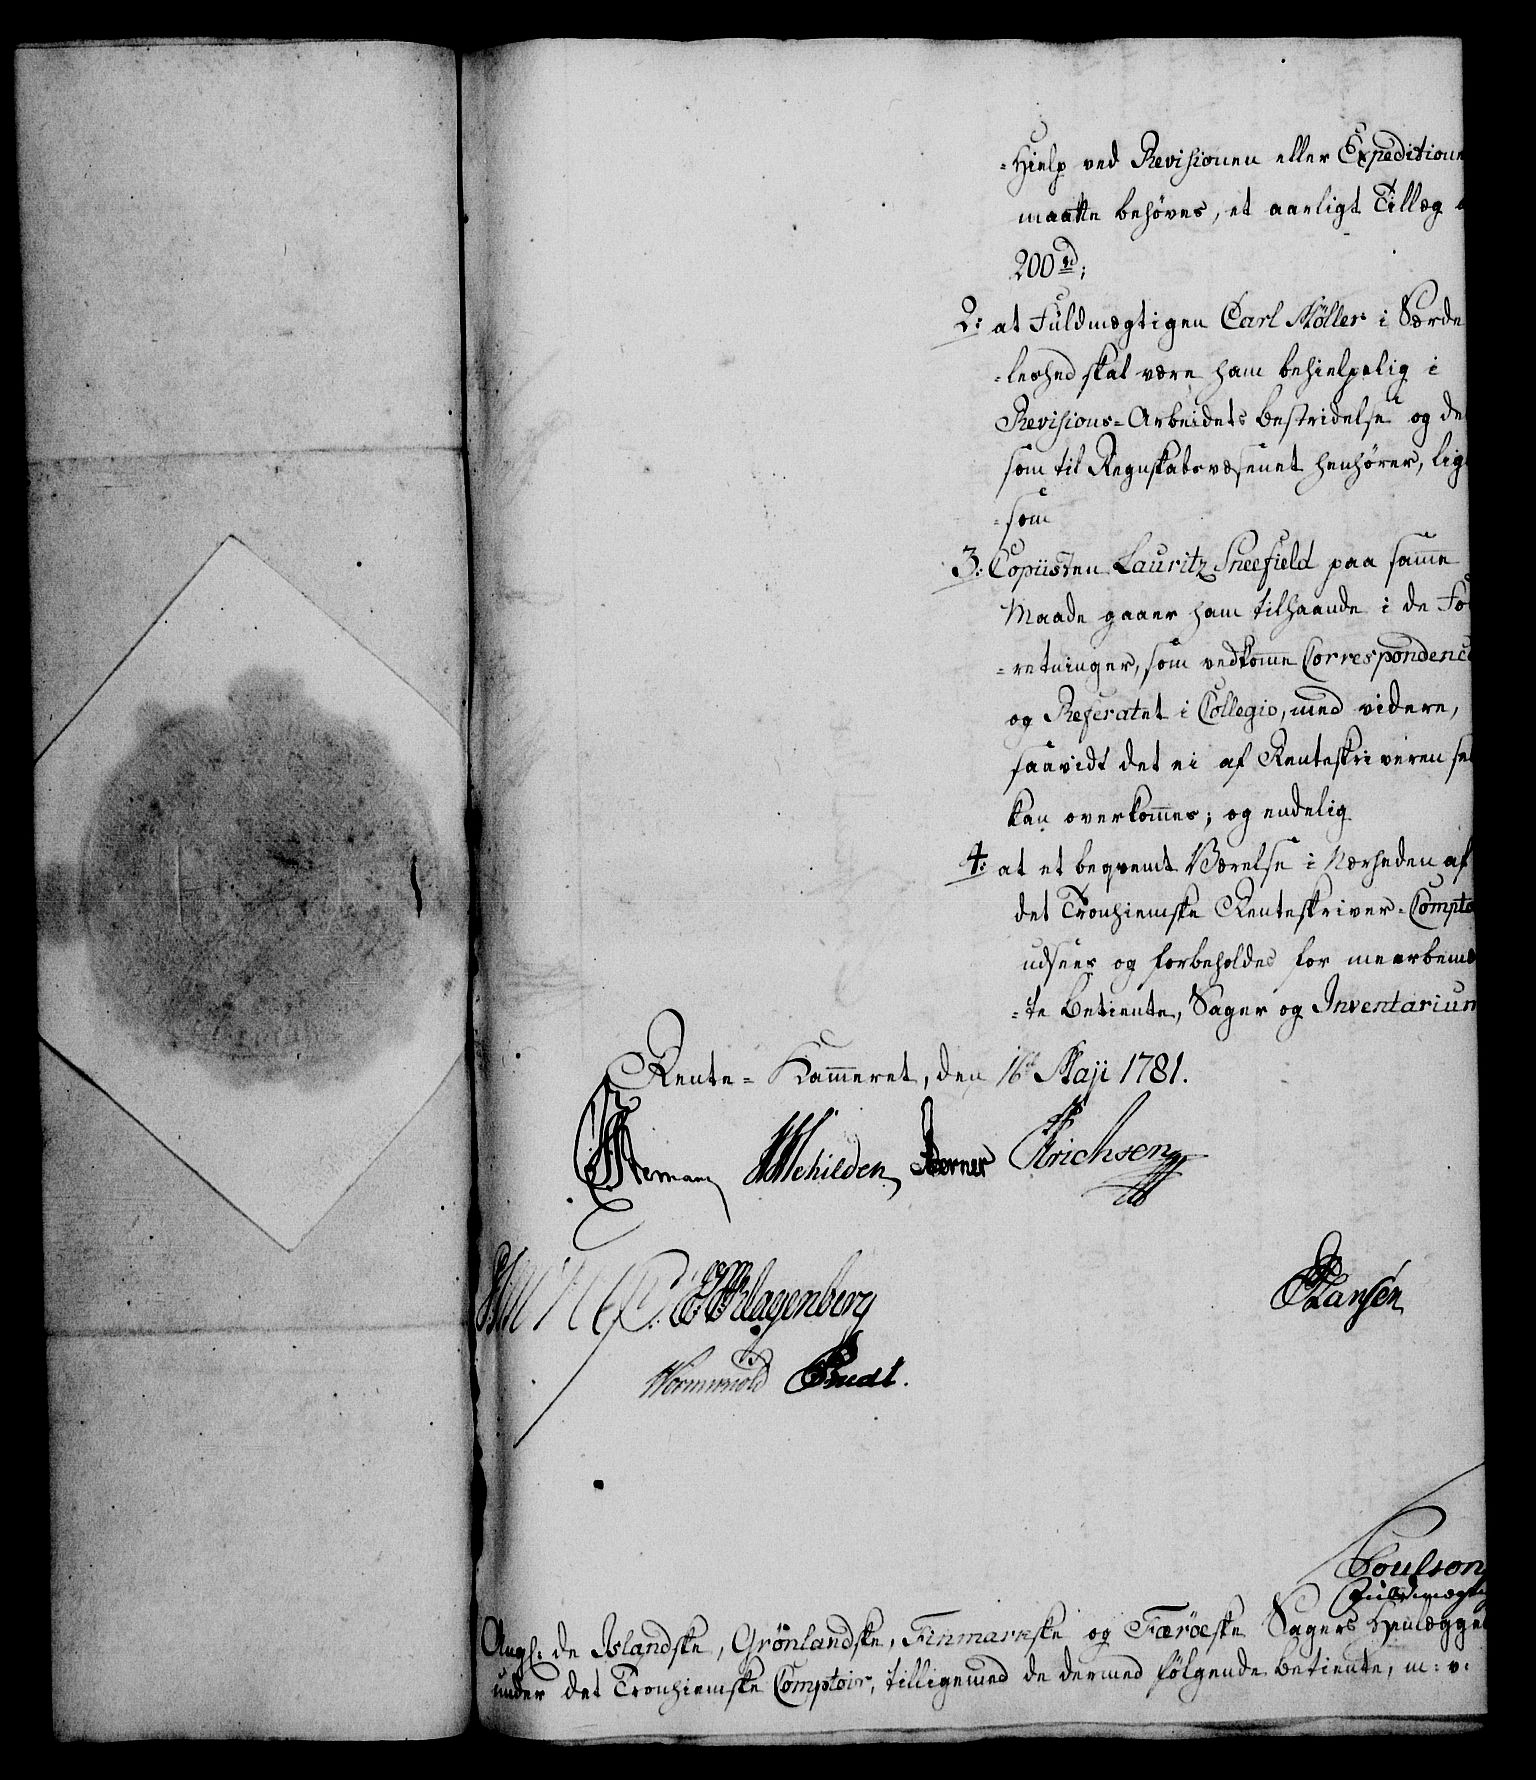 -Hielp ved Revisionen eller Expeditione
maatte behøves, et aarligt Tillæg
200 rd;
2: at Fuldmægtigen Carl Møller i Særde
-leshed skal være ham behielpelig i
Revisions-Arbeidets bestridelse og de
som til Regnskabsvæsenet henhører, lig
-som
3: Copiisten Lauritz Sneefield paa samme
Maade gaaer ham tilhaande i de For
-retninger, som vedkomme Correspondence
og Referatet i Collegio, med videre,
saavidt det ei af Renteskriveren sel
kan overkommes; og endelig
4: at et beqvemt Værelse i Nærheden af
det Tronhiemske Renteskriver-Compto
udsees og forbeholdes for meerbemel
-te betiente, Sager og Inventarium
Rente-Kammeret, den 16d Maji 1781.
Schilden Berner Erichsen
Klagenberg
Hansen
Wormskiold
Poulson
Fuldmægtig
Angl: de Islandske, Grønlandske, Finmarkske og Færøeske Sagers Henlæggel
under det Tronhiemske Comptoir, tilligemed de dermed følgende betiente, m: v: